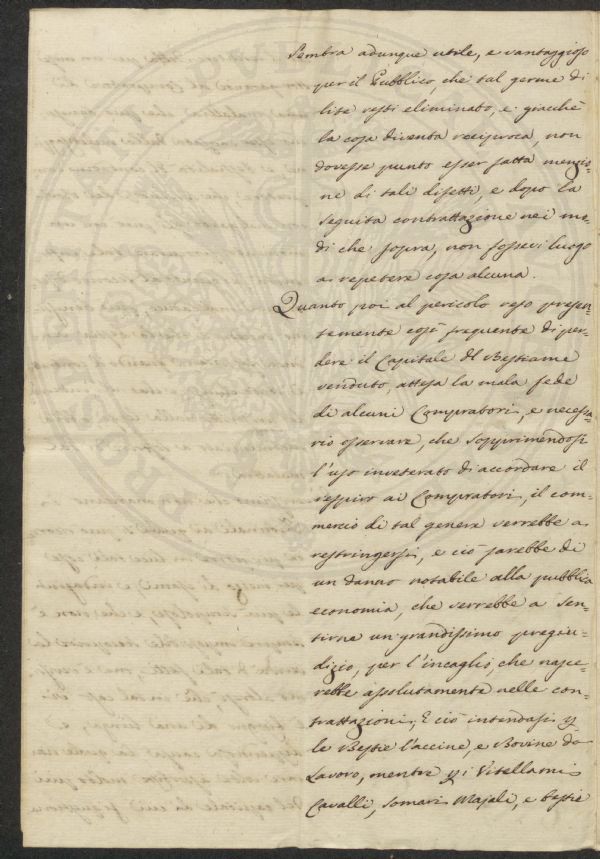 Sembra adunque utile, e vantaggioso
per il Pubblico, che tal germe di
lite resti eliminato, e giacchè
la cosa diventa reciproca, non
dovesse punto esser fatta menzio=
ne di tali difetti, e dopo la
seguita contrattazione nei mo=
di che sopra, non fossevi luogo
a repetere cosa alcuna.
Quanto poi al pericolo reso presen=
temente così frequente di per=
dere il Capitale del Bestiame
venduto, attesa la mala fede
di alcuni Compratori, e necessa=
rio osservare, che sopprimendosi
l'uso inveterato di accordare il
respiro ai Compratori, il com=
mercio di tal genere verrebbe a
restringersi, e ciò sarebbe di
un danno notabile alla pubblica
economia, che verrebbe a sen=
tirne un grandissimo pregiu=
dizio, per l'incaglio, che nasce=
rebbe assolutamente nelle con=
trattazioni, E ciò intendasi p
le Bestie Vaccine, e Bovine da
Lavoro, mentre p i Vitellami
Cavalli, Somari Majali, e bestie